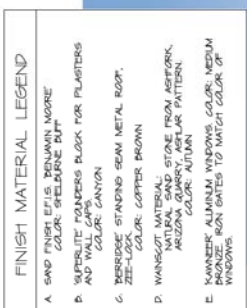 FINISH MATERIAL LEGEND
A. SAND FINISH E.F.I.S. 'BENJAMIN MOORE'
COLOR: SHELBURNE BUFF
B. 'SUPERLITE' FOUNDERS BLOCK FOR PILASTERS
AND WALL CAPS.
COLOR: CANYON
C. 'BERRIDGE' STANDING SEAM METAL ROOF.
ZEE-LOCK.
COLOR: COPPER BROWN
D. WAINSCOT MATERIAL:
NATURAL SAND STONE FROM ASHFORK,
ARIZONA QUARRY. ASHLAR PATTERN.
COLOR: AUTUMN
E. 'KAWNEER' ALUMINUM WINDOWS. COLOR: MEDIUM
BRONZE. IRON GATES TO MATCH COLOR OF
WINDOWS.